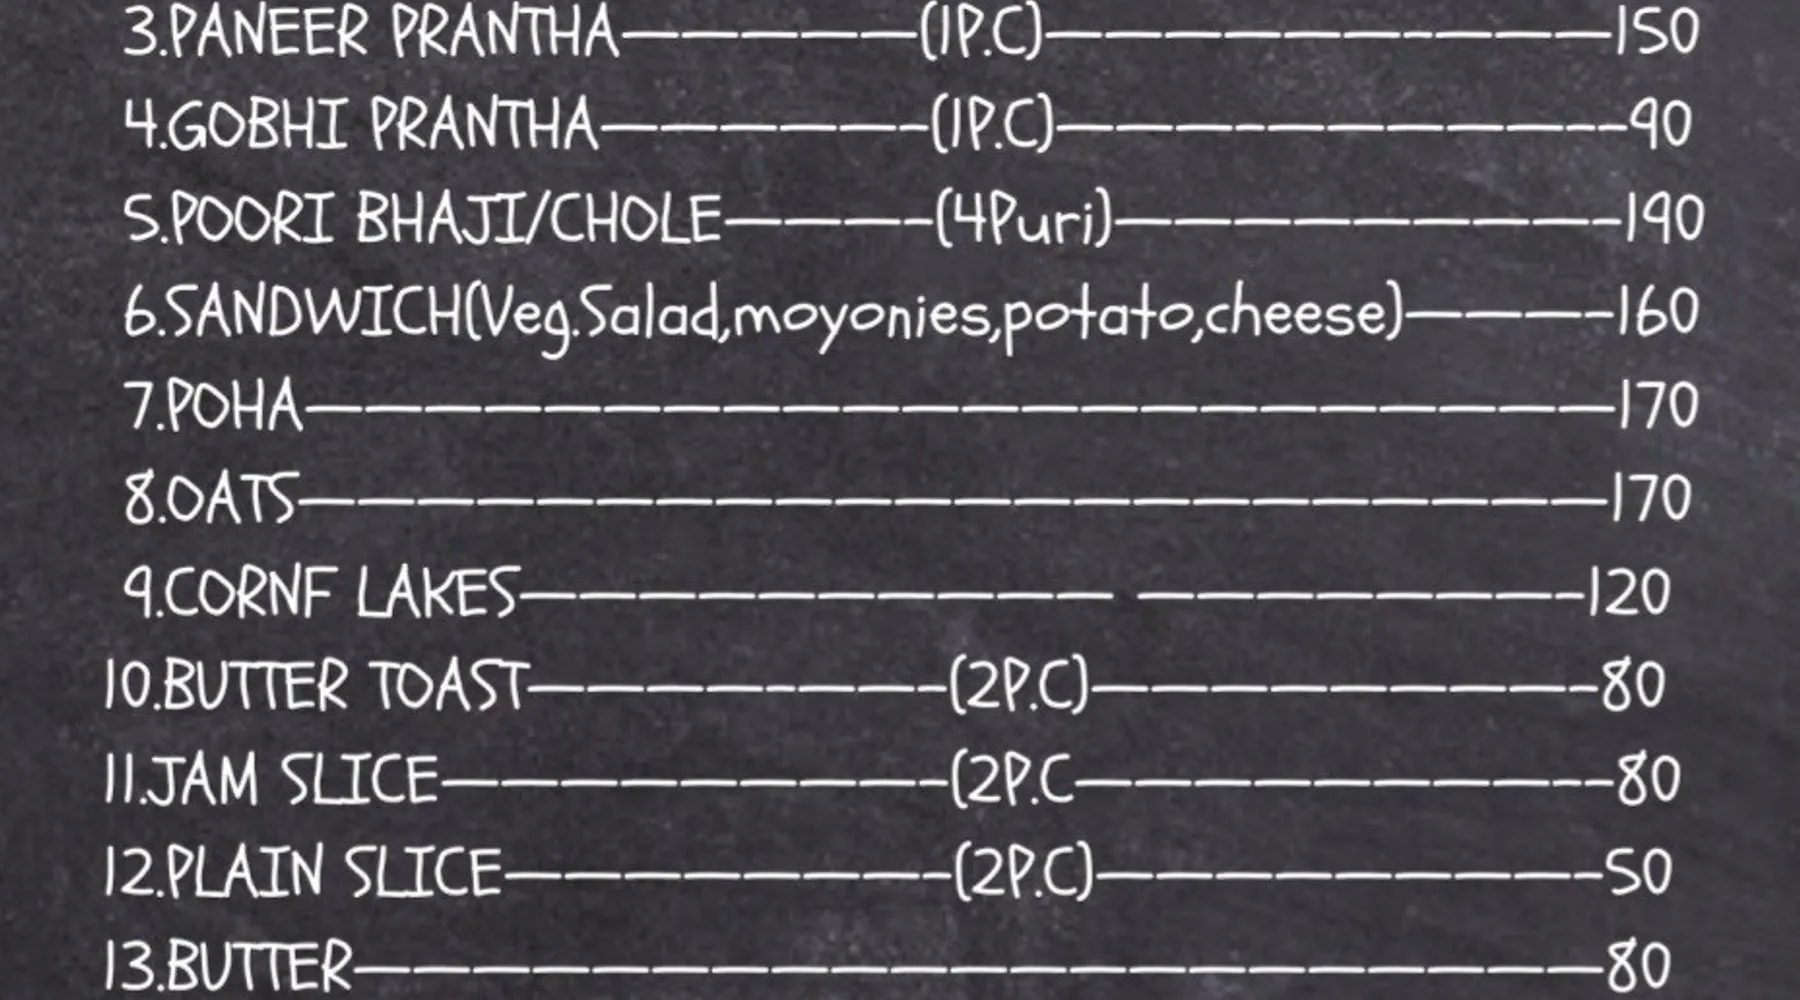 3.PANEER PRANTHA——————(1P.C)——————————150
4.GOBHI PRANTHA——————(1P.C)——————————90
5.POORI BHAJI/CHOLE————(4Puri)—————————190
6.SANDWICH(Veg.Salad,moyonies,potato,cheese)————160
7.POHA——————————————————————170
8.OATS——————————————————————170
9.CORNF LAKES—————————— ————————120
10.BUTTER TOAST———————(2P.C)—————————80
11.JAM SLICE—————————(2P.C—————————80
12.PLAIN SLICE————————(2P.C)—————————50
13.BUTTER—————————————————————80